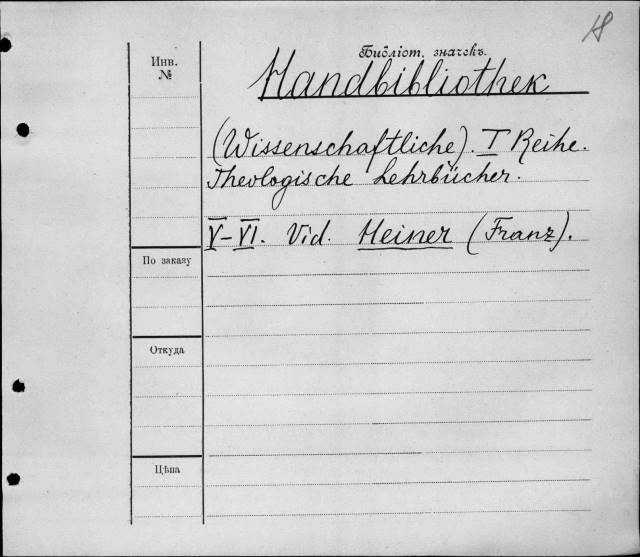 H
Библіот. значекъ.
Инв.
№
Handbibliothek
(Wissenschaftliche). I Reihe.
Theologische Lehrbücher.
V–VI. Vid. Heiner (Franz).
По заказу
Откуда
Цѣна